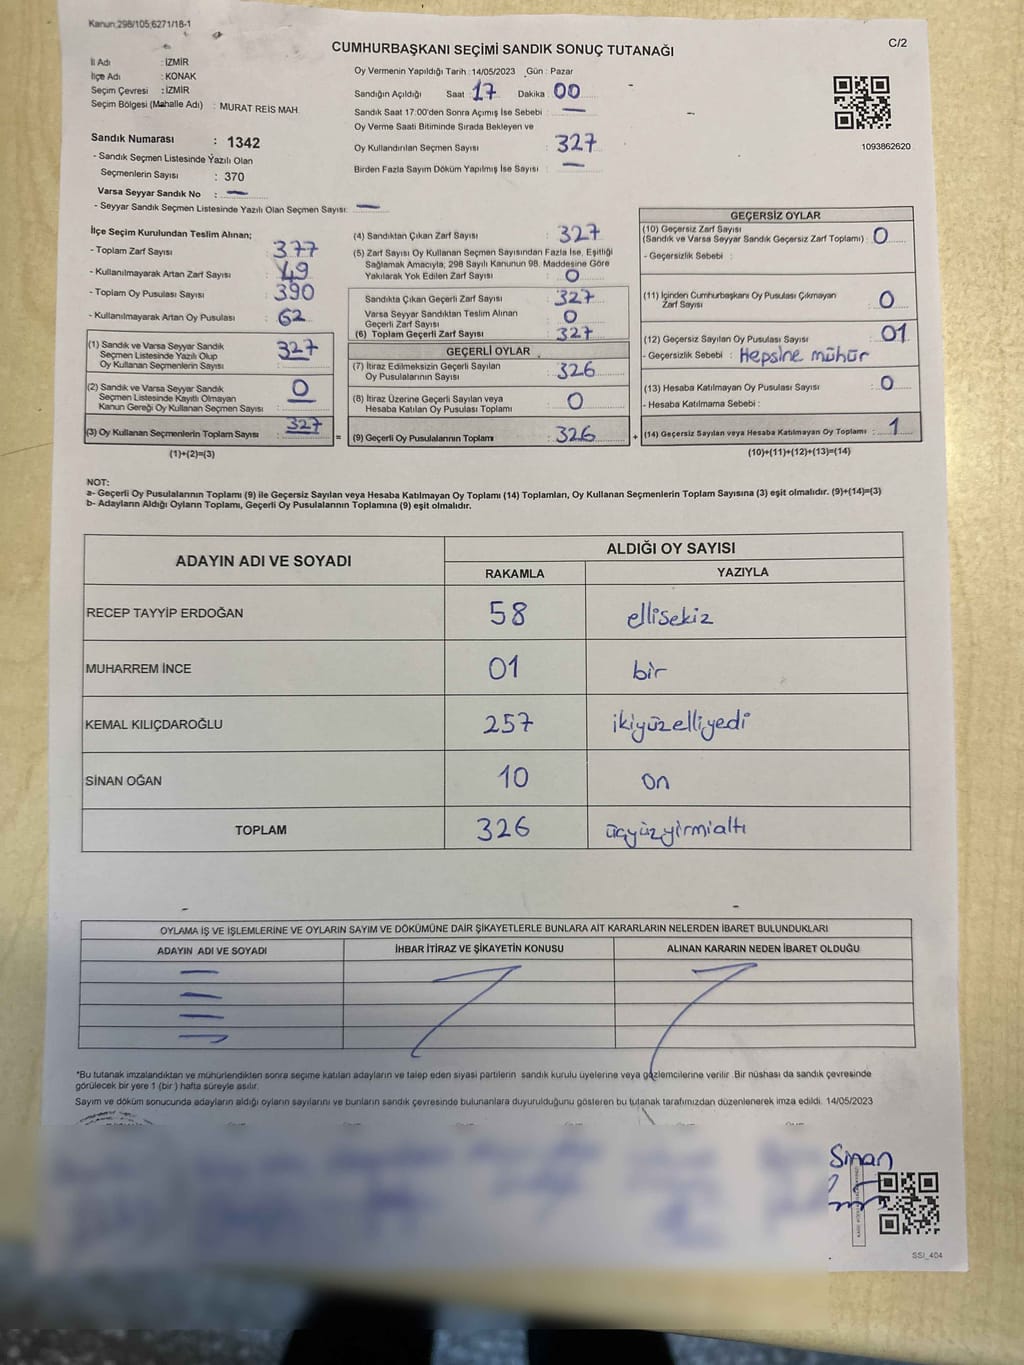 Kanun 298/105;6271/18-1
C/2
CUMHURBAŞKANI SEÇİMİ SANDIK SONUÇ TUTANAĞI
İl Adı : İZMİR
İlçe Adı : KONAK
Seçim Çevresi : İZMİR
Seçim Bölgesi (Mahalle Adı) : MURAT REİS MAH.
Oy Vermenin Yapıldığı Tarih : 14/05/2023 Gün : Pazar
Sandığın Açıldığı Saat 17 Dakika 00
Sandık Saat 17:00'den Sonra Açımış İse Sebebi : —
Oy Verme Saati Bitiminde Sırada Bekleyen ve
Oy Kullandırılan Seçmen Sayısı : 327
Birden Fazla Sayım Döküm Yapılmış İse Sayısı : —
1093862620
Sandık Numarası : 1342
- Sandık Seçmen Listesinde Yazılı Olan
Seçmenlerin Sayısı : 370
Varsa Seyyar Sandık No : —
- Seyyar Sandık Seçmen Listesinde Yazılı Olan Seçmen Sayısı: —
İlçe Seçim Kurulundan Teslim Alınan;
- Toplam Zarf Sayısı : 377
- Kullanılmayarak Artan Zarf Sayısı : 49
- Toplam Oy Pusulası Sayısı : 390
- Kullanılmayarak Artan Oy Pusulası : 62
(1) Sandık ve Varsa Seyyar Sandık
Seçmen Listesinde Yazılı Olup
Oy Kullanan Seçmenlerin Sayısı : 327
(2) Sandık ve Varsa Seyyar Sandık
Seçmen Listesinde Kayıtlı Olmayan
Kanun Gereği Oy Kullanan Seçmen Sayısı : 0
(3) Oy Kullanan Seçmenlerin Toplam Sayısı : 327
(1)+(2)=(3)
(4) Sandıktan Çıkan Zarf Sayısı : 327
(5) Zarf Sayısı Oy Kullanan Seçmen Sayısından Fazla İse, Eşitliği
Sağlamak Amacıyla; 298 Sayılı Kanunun 98. Maddesine Göre
Yakılarak Yok Edilen Zarf Sayısı : 0
Sandıkta Çıkan Geçerli Zarf Sayısı : 327
Varsa Seyyar Sandıktan Teslim Alınan
Geçerli Zarf Sayısı : 0
(6) Toplam Geçerli Zarf Sayısı : 327
GEÇERLİ OYLAR
(7) İtiraz Edilmeksizin Geçerli Sayılan
Oy Pusulalarının Sayısı : 326
(8) İtiraz Üzerine Geçerli Sayılan veya
Hesaba Katılan Oy Pusulası Toplamı : 0
= (9) Geçerli Oy Pusulalarının Toplamı : 326
GEÇERSİZ OYLAR
(10) Geçersiz Zarf Sayısı
(Sandık ve Varsa Seyyar Sandık Geçersiz Zarf Toplamı) : 0
- Geçersizlik Sebebi :
(11) İçinden Cumhurbaşkanı Oy Pusulası Çıkmayan
Zarf Sayısı : 0
(12) Geçersiz Sayılan Oy Pusulası Sayısı : 01
- Geçersizlik Sebebi : Hepsine mühür
(13) Hesaba Katılmayan Oy Pusulası Sayısı : 0
- Hesaba Katılmama Sebebi :
+ (14) Geçersiz Sayılan veya Hesaba Katılmayan Oy Toplamı : 1
(10)+(11)+(12)+(13)=(14)
NOT:
a- Geçerli Oy Pusulalarının Toplamı (9) ile Geçersiz Sayılan veya Hesaba Katılmayan Oy Toplamı (14) Toplamları, Oy Kullanan Seçmenlerin Toplam Sayısına (3) eşit olmalıdır. (9)+(14)=(3)
b- Adayların Aldığı Oyların Toplamı, Geçerli Oy Pusulalarının Toplamına (9) eşit olmalıdır.
ADAYIN ADI VE SOYADI
ALDIĞI OY SAYISI
RAKAMLA YAZIYLA
RECEP TAYYİP ERDOĞAN 58 ellisekiz
MUHARREM İNCE 01 bir
KEMAL KILIÇDAROĞLU 257 ikiyüzelliyedi
SİNAN OĞAN 10 on
TOPLAM 326 üçyüzyirmialtı
OYLAMA İŞ VE İŞLEMLERİNE VE OYLARIN SAYIM VE DÖKÜMÜNE DAİR ŞİKAYETLERLE BUNLARA AİT KARARLARIN NELERDEN İBARET BULUNDUKLARI
ADAYIN ADI VE SOYADI İHBAR İTİRAZ VE ŞİKAYETİN KONUSU ALINAN KARARIN NEDEN İBARET OLDUĞU
*Bu tutanak imzalandıktan ve mühürlendikten sonra seçime katılan adayların ve talep eden siyasi partilerin sandık kurulu üyelerine veya gözlemcilerine verilir. Bir nüshası da sandık çevresinde
görülecek bir yere 1 (bir) hafta süreyle asılır.
Sayım ve döküm sonucunda adayların aldığı oyların sayılarını ve bunların sandık çevresinde bulunanlara duyurulduğunu gösteren bu tutanak tarafımızdan düzenlenerek imza edildi. 14/05/2023
Sinan
SSI_404